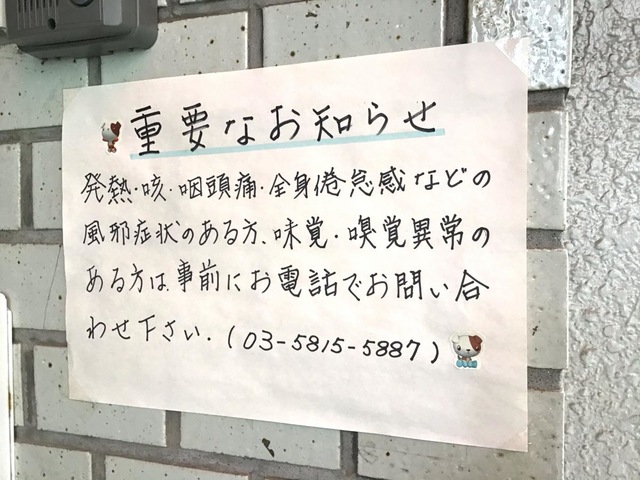 重要なお知らせ
発熱・咳・咽頭痛・全身倦怠感などの
風邪症状のある方、味覚・嗅覚異常の
ある方は事前にお電話でお問い合
わせ下さい.(03-5815-5887)